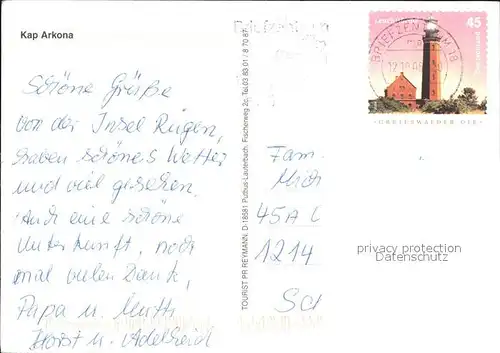 Kap Arkona
Schöne Grüße
von der Insel Rügen,
haben schönes Wetter
und viel gesehen.
Auch eine schöne
Unterkunft, noch
mal vielen Dank,
Papa u. Mutti
Horst u. Adelheid
TOURIST PR REYMANN, D-18581 Putbus-Lauterbach, Fischerweg 2c, Tel. 03 83 01 / 8 70 87
45
BRIEFZENTRUM 18
GREIFSWALDER OIE
Fam.
45A
1214
privacy protection
Datenschutz